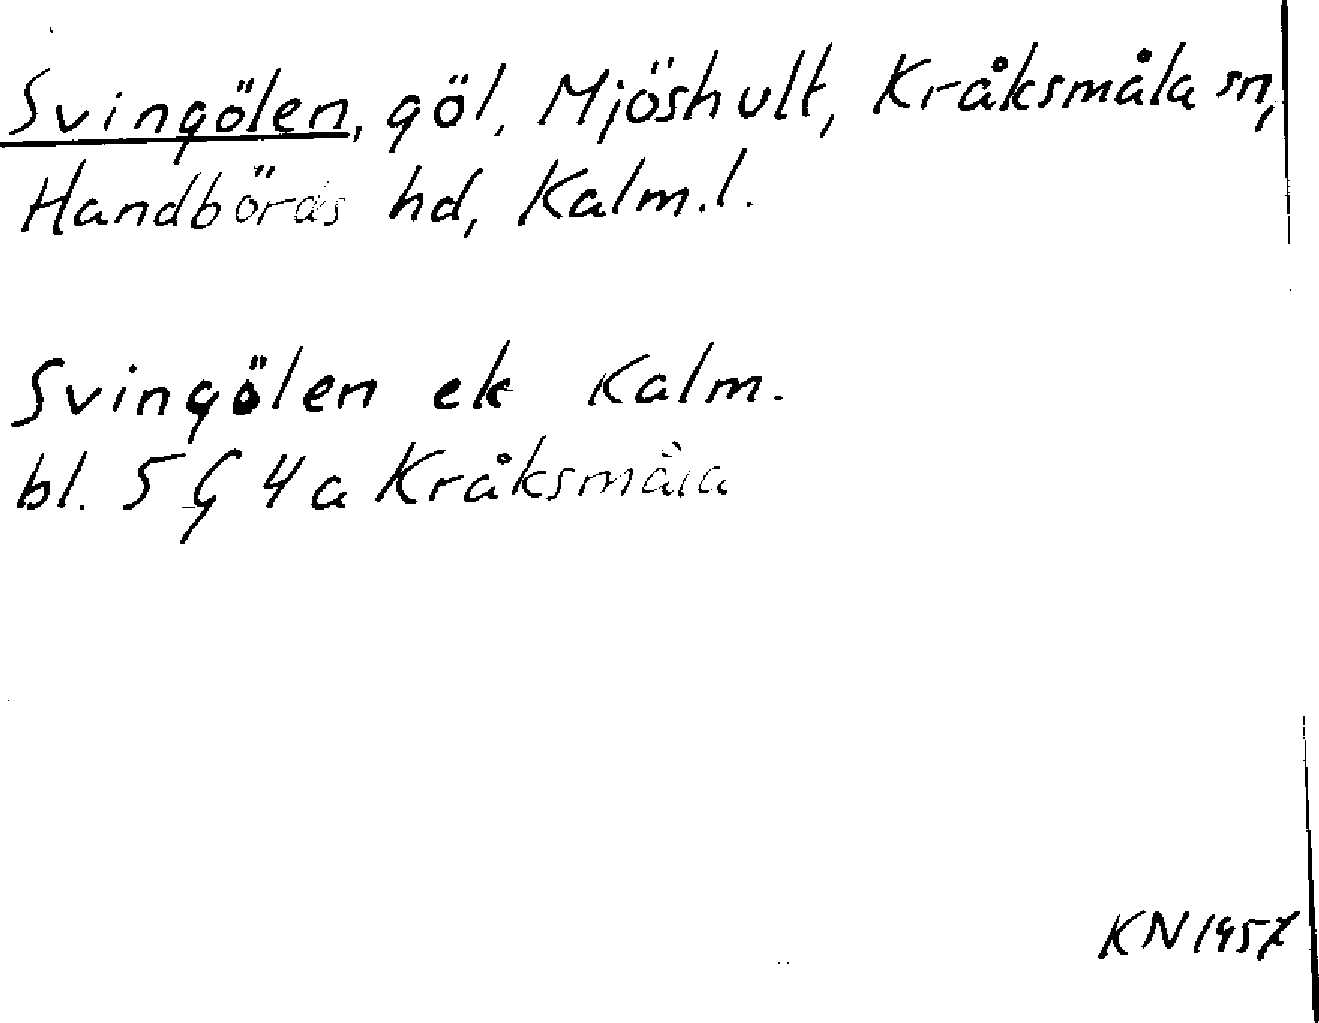 Svingölen, göl, Mjöshult, Kråksmåla sn,
Handbörds hd, Kalm.l.
Svingölen ek Kalm.
bl. 5 G 4 a Kråksmåla
KN 1957